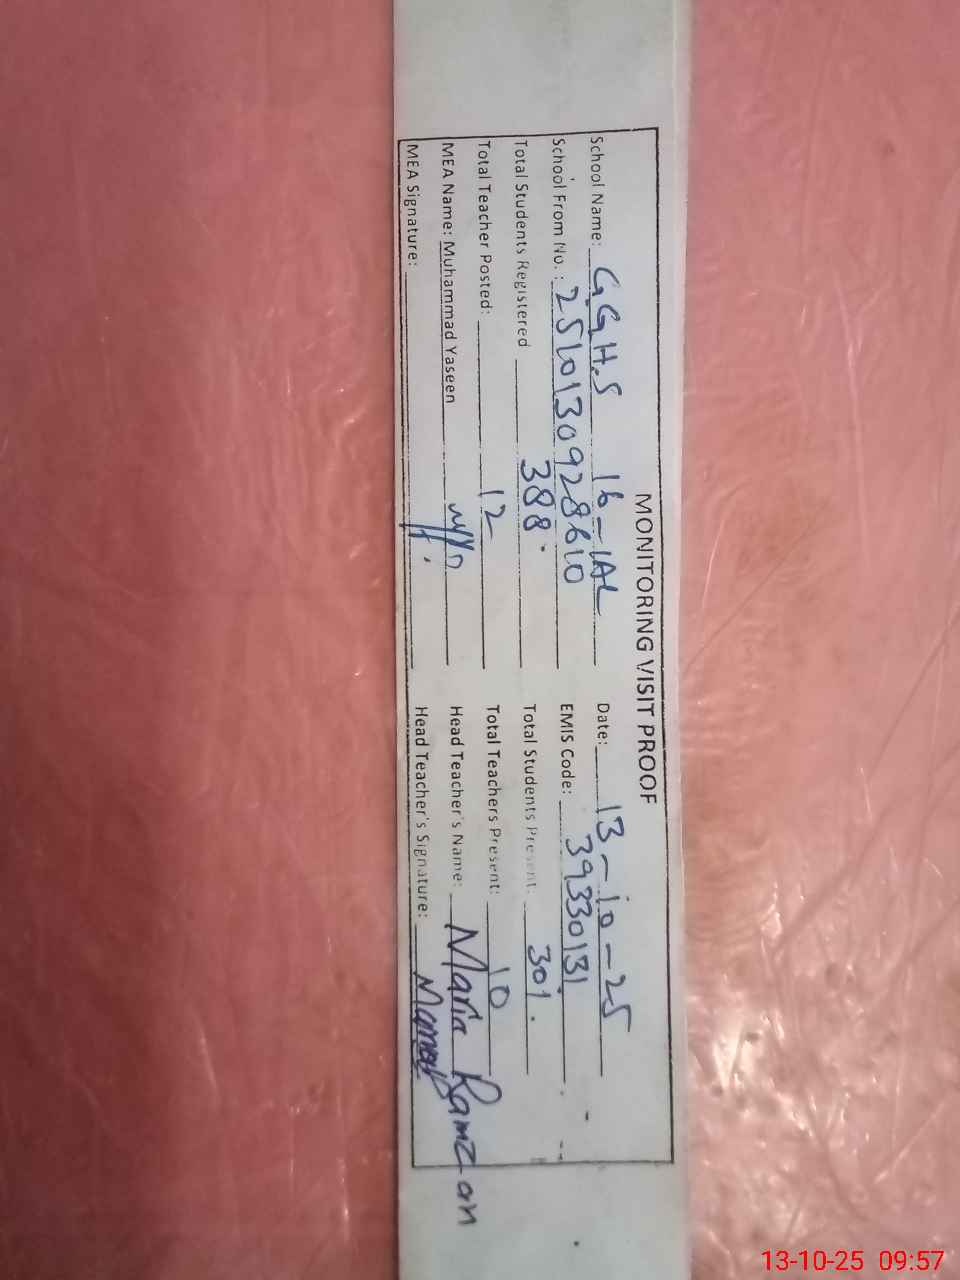 MONITORING VISIT PROOF
School Name: GGHS 16-1AL Date: 13-10-25
School From No.: 2510130928610 EMIS Code: 39330131
Total Students Registered 388 Total Students Present: 301
Total Teacher Posted: 12 Total Teachers Present: 10
MEA Name: Muhammad Yaseen Head Teacher's Name: Maria Ramzan
MEA Signature: Head Teacher's Signature:
13-10-25 09:57